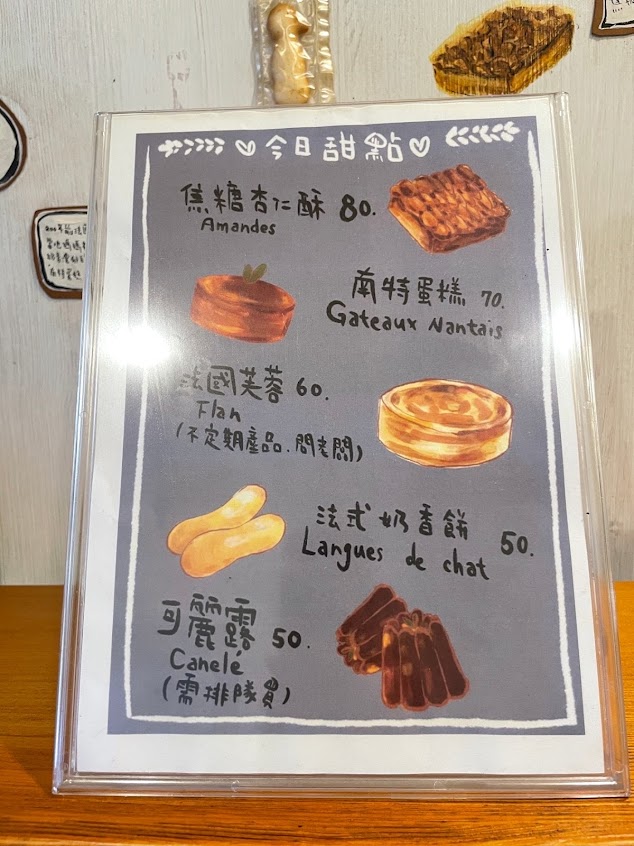 今日甜點
焦糖杏仁酥 80.
Amandes
南特蛋糕 70.
Gateaux Nantais
法國芙蓉 60.
Flan
(不定期產品.問老闆)
法式奶香餅 50.
Langues de chat
可麗露 50.
Canelé
(需排隊買)